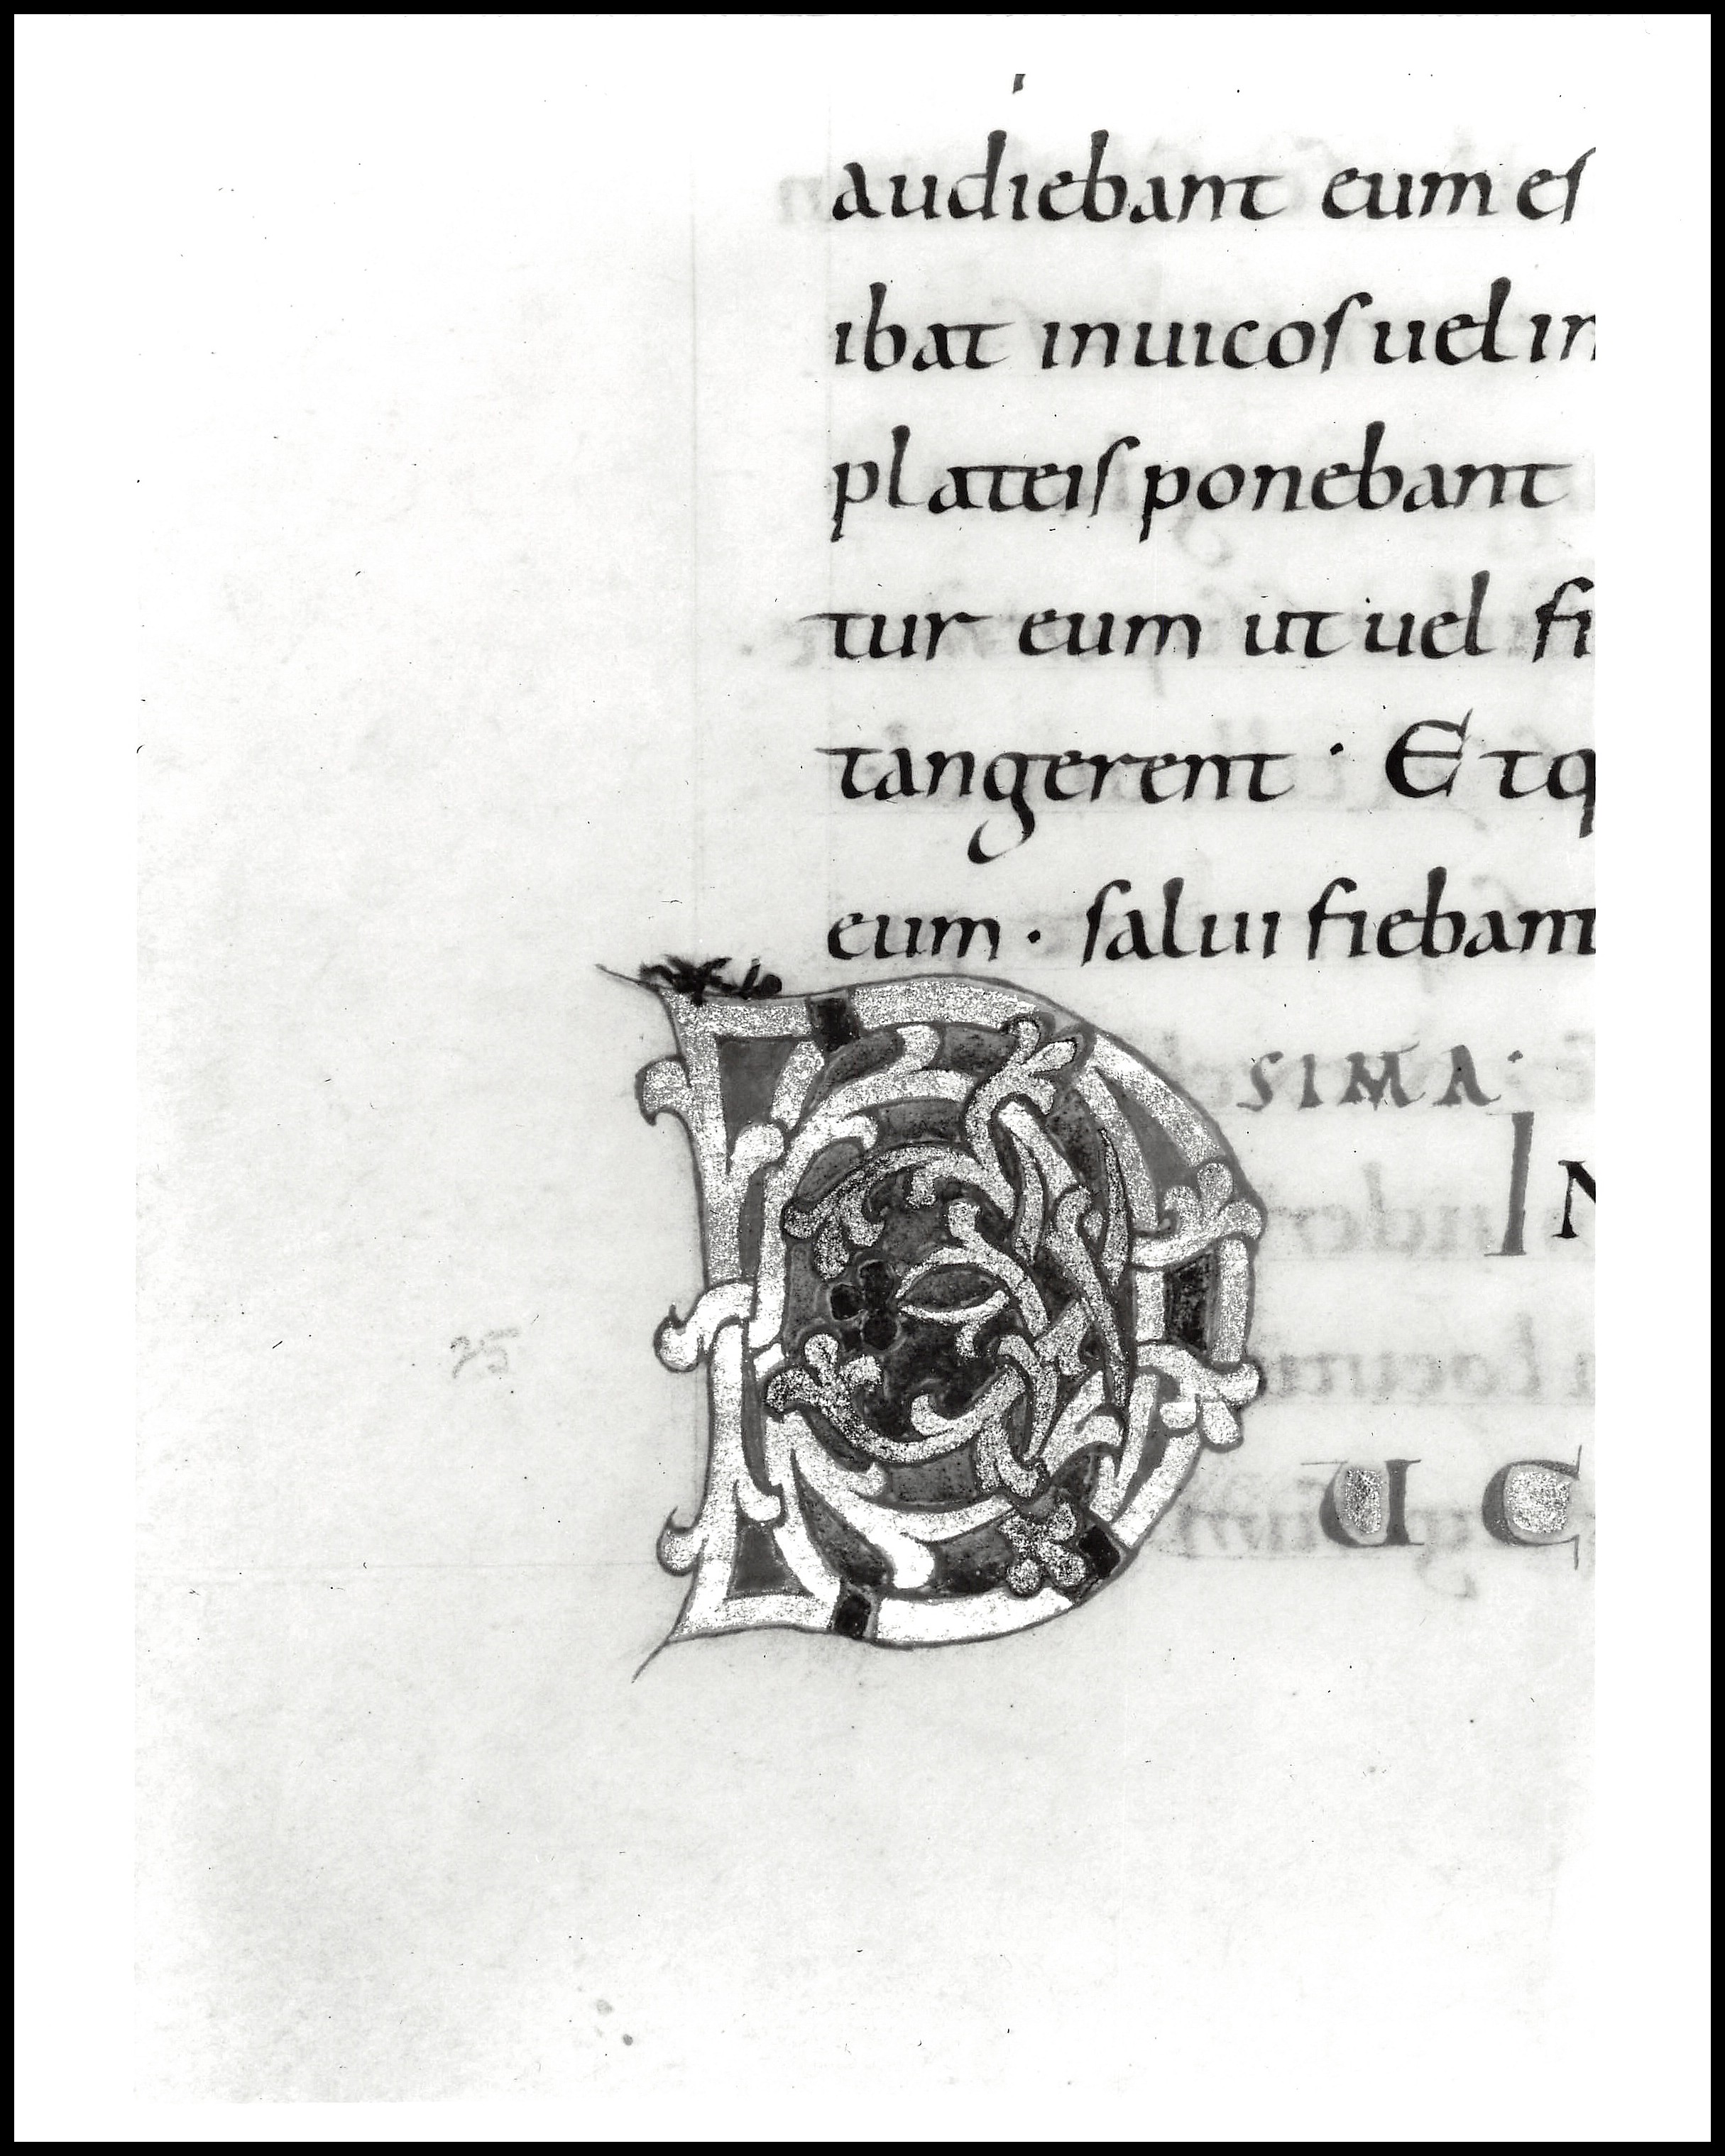 audiebant eum es
ibat in uicos uel in
plateis ponebant
tur eum ut uel fi
tangerent · Et q
eum · salui fiebant
SIMA·
IN
D UC
25